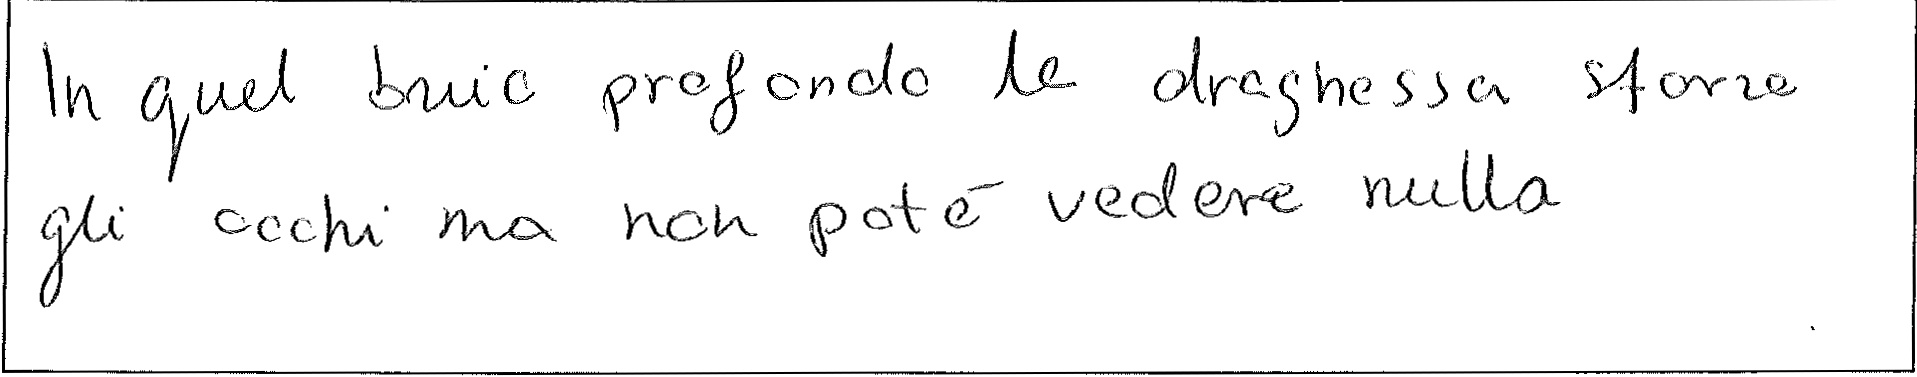 In quel buio profondo la draghessa sforza
gli occhi ma non poté vedere nulla